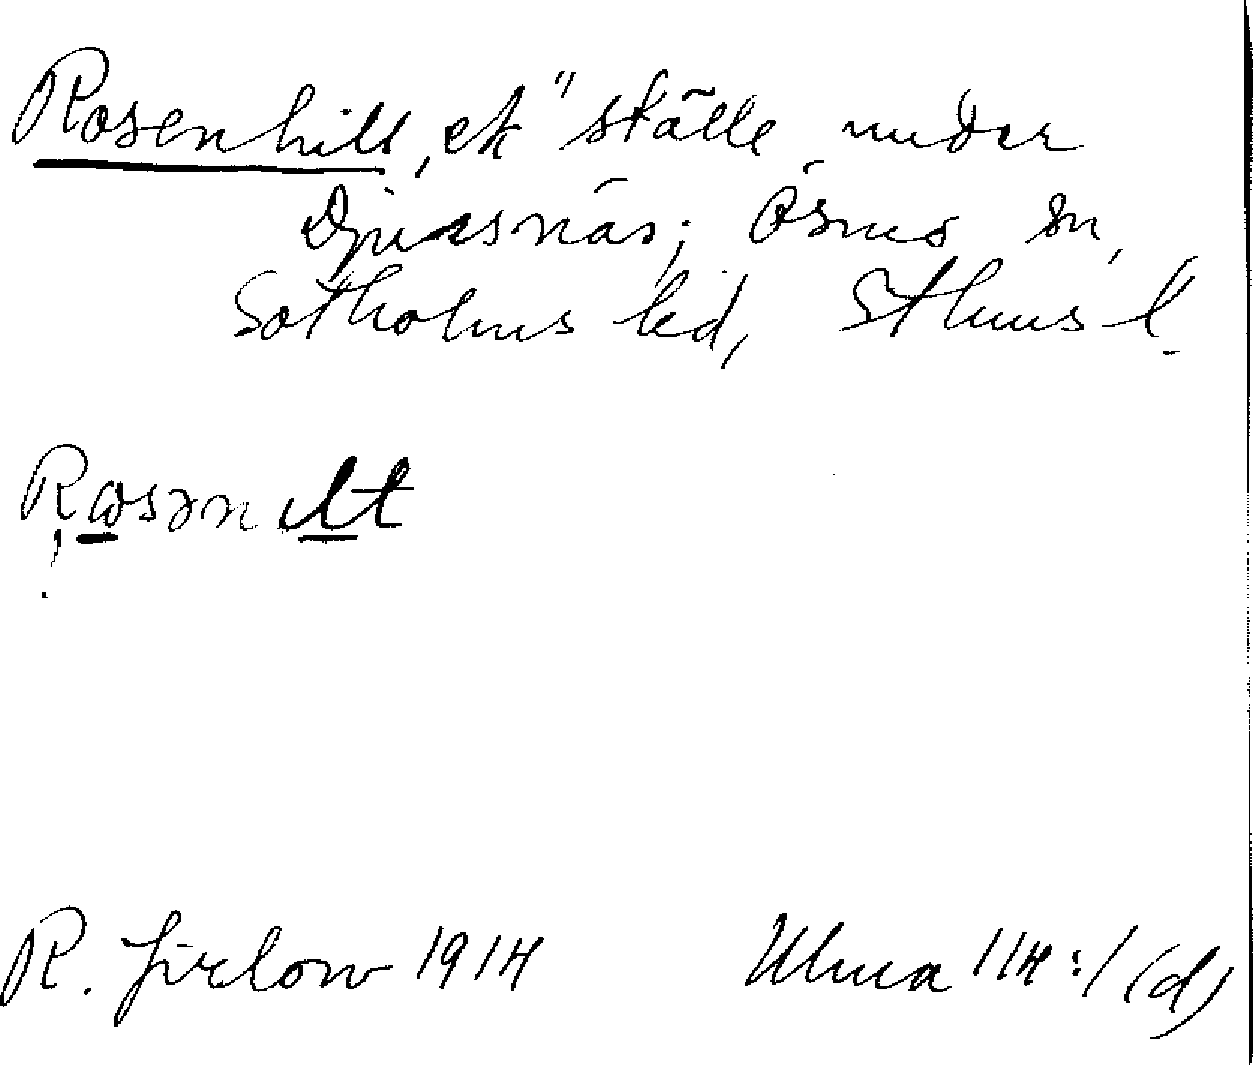 Rosenhill, ett "ställe" under
Djursnäs; Ösmo sn,
Sotholms hd, Sthms l.
Rosənılt
R. Jirlow 1914
Ulma 114:1 (d)